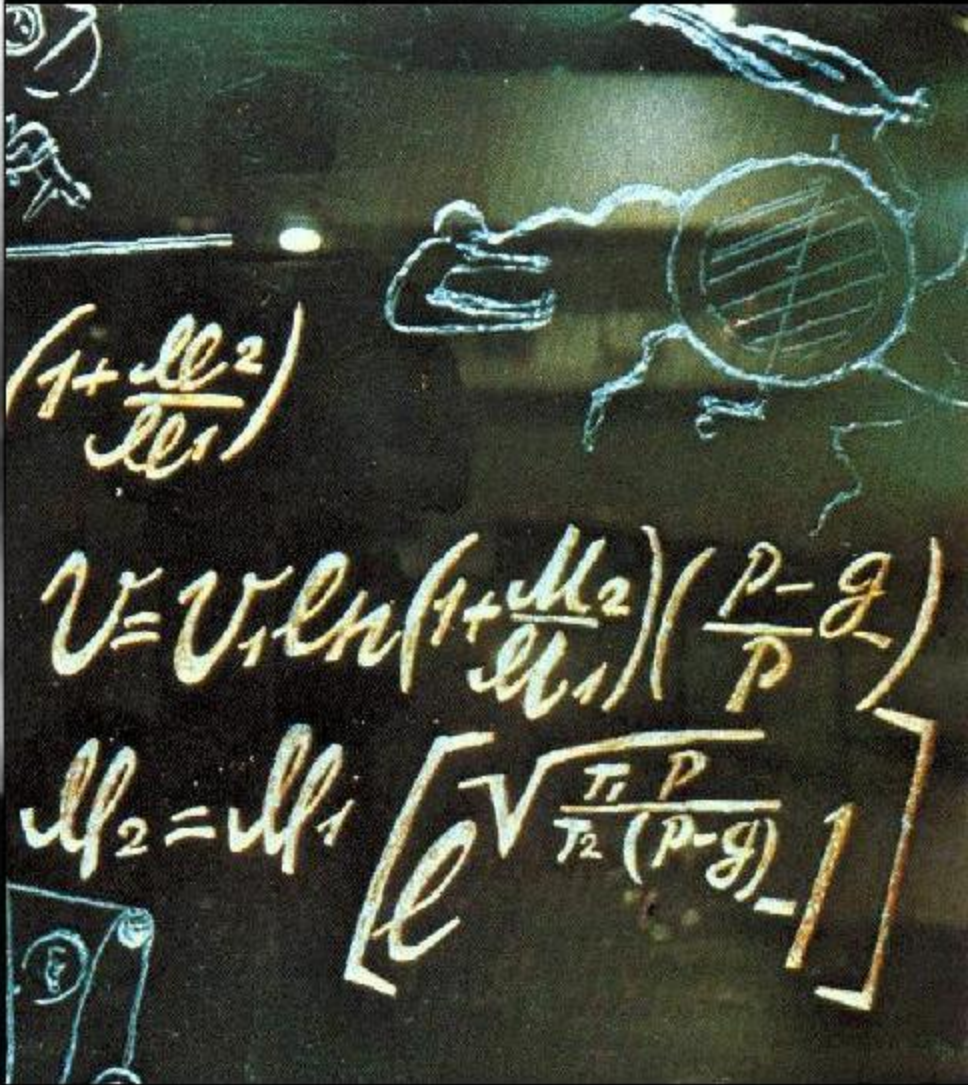 (1+M2/M1)
V=V1ln(1+M2/M1)(p-g/p)
M2=M1[e√(T1 p/T2(p-g))-1]